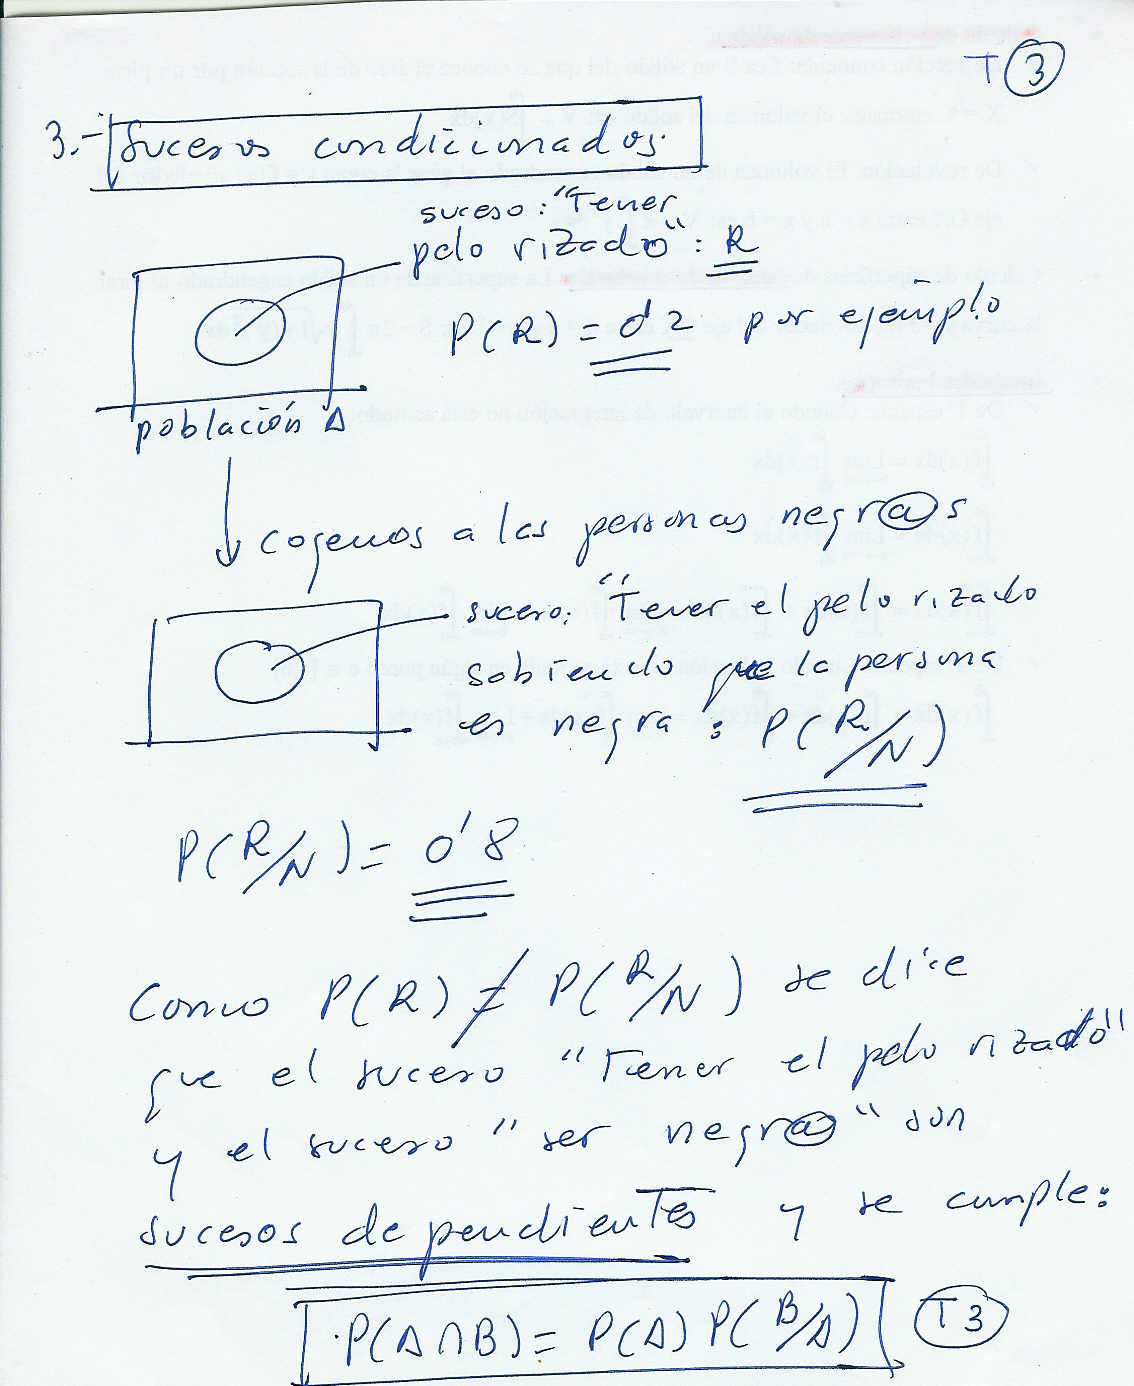 T 3
3.- Sucesos condicionados.
suceso: "Tener
pelo rizado": R
P(R) = 0'2 por ejemplo
población A
cogemos a las personas negr@s
suceso: "Tener el pelo rizado
sabiendo que la persona
es negra: P(R/N)
P(R/N) = 0'8
Como P(R) ≠ P(R/N) se dice
que el suceso "Tener el pelo rizado"
y el suceso "ser negr@" son
sucesos dependientes y se cumple:
P(A∩B) = P(A) P(B/A) T3